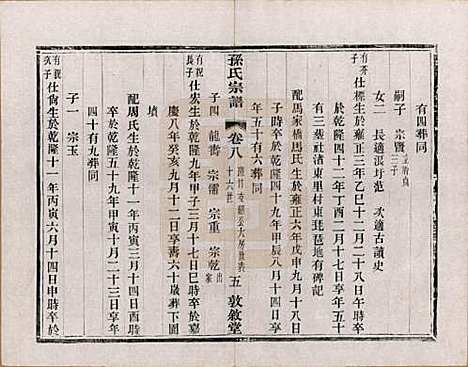 有四葬同
嗣子 宗賢
女二 長適張圩范 次適古讀史
仕標生於雍正三年乙巳十二月二十八日午時卒
於乾隆四十二年丁酉二月十七日享年五十
有三葬社渚東里村東琵琶地有碑記
配馬家橋馬氏生於雍正六年戊申九月十八日
子時卒於乾隆四十九年甲辰八月十四日享
年五十有六葬同
孫氏宗譜 卷八 十六世 五 敦敘堂
子四 龍壽 宗儒 宗重 宗乾 出家
有祝長子 仕宏生於乾隆九年甲子三月十四日巳時卒於嘉
慶八年癸亥九月十二日享壽六十歲葬下圖
墳
配周氏生於乾隆十一年丙寅三月十四日酉時
卒於乾隆五十九年甲寅十二月二十三日享年
四十有九葬同
子一 宗玉
有祝次子 仕尙生於乾隆十一年丙寅六月十四日申時卒於